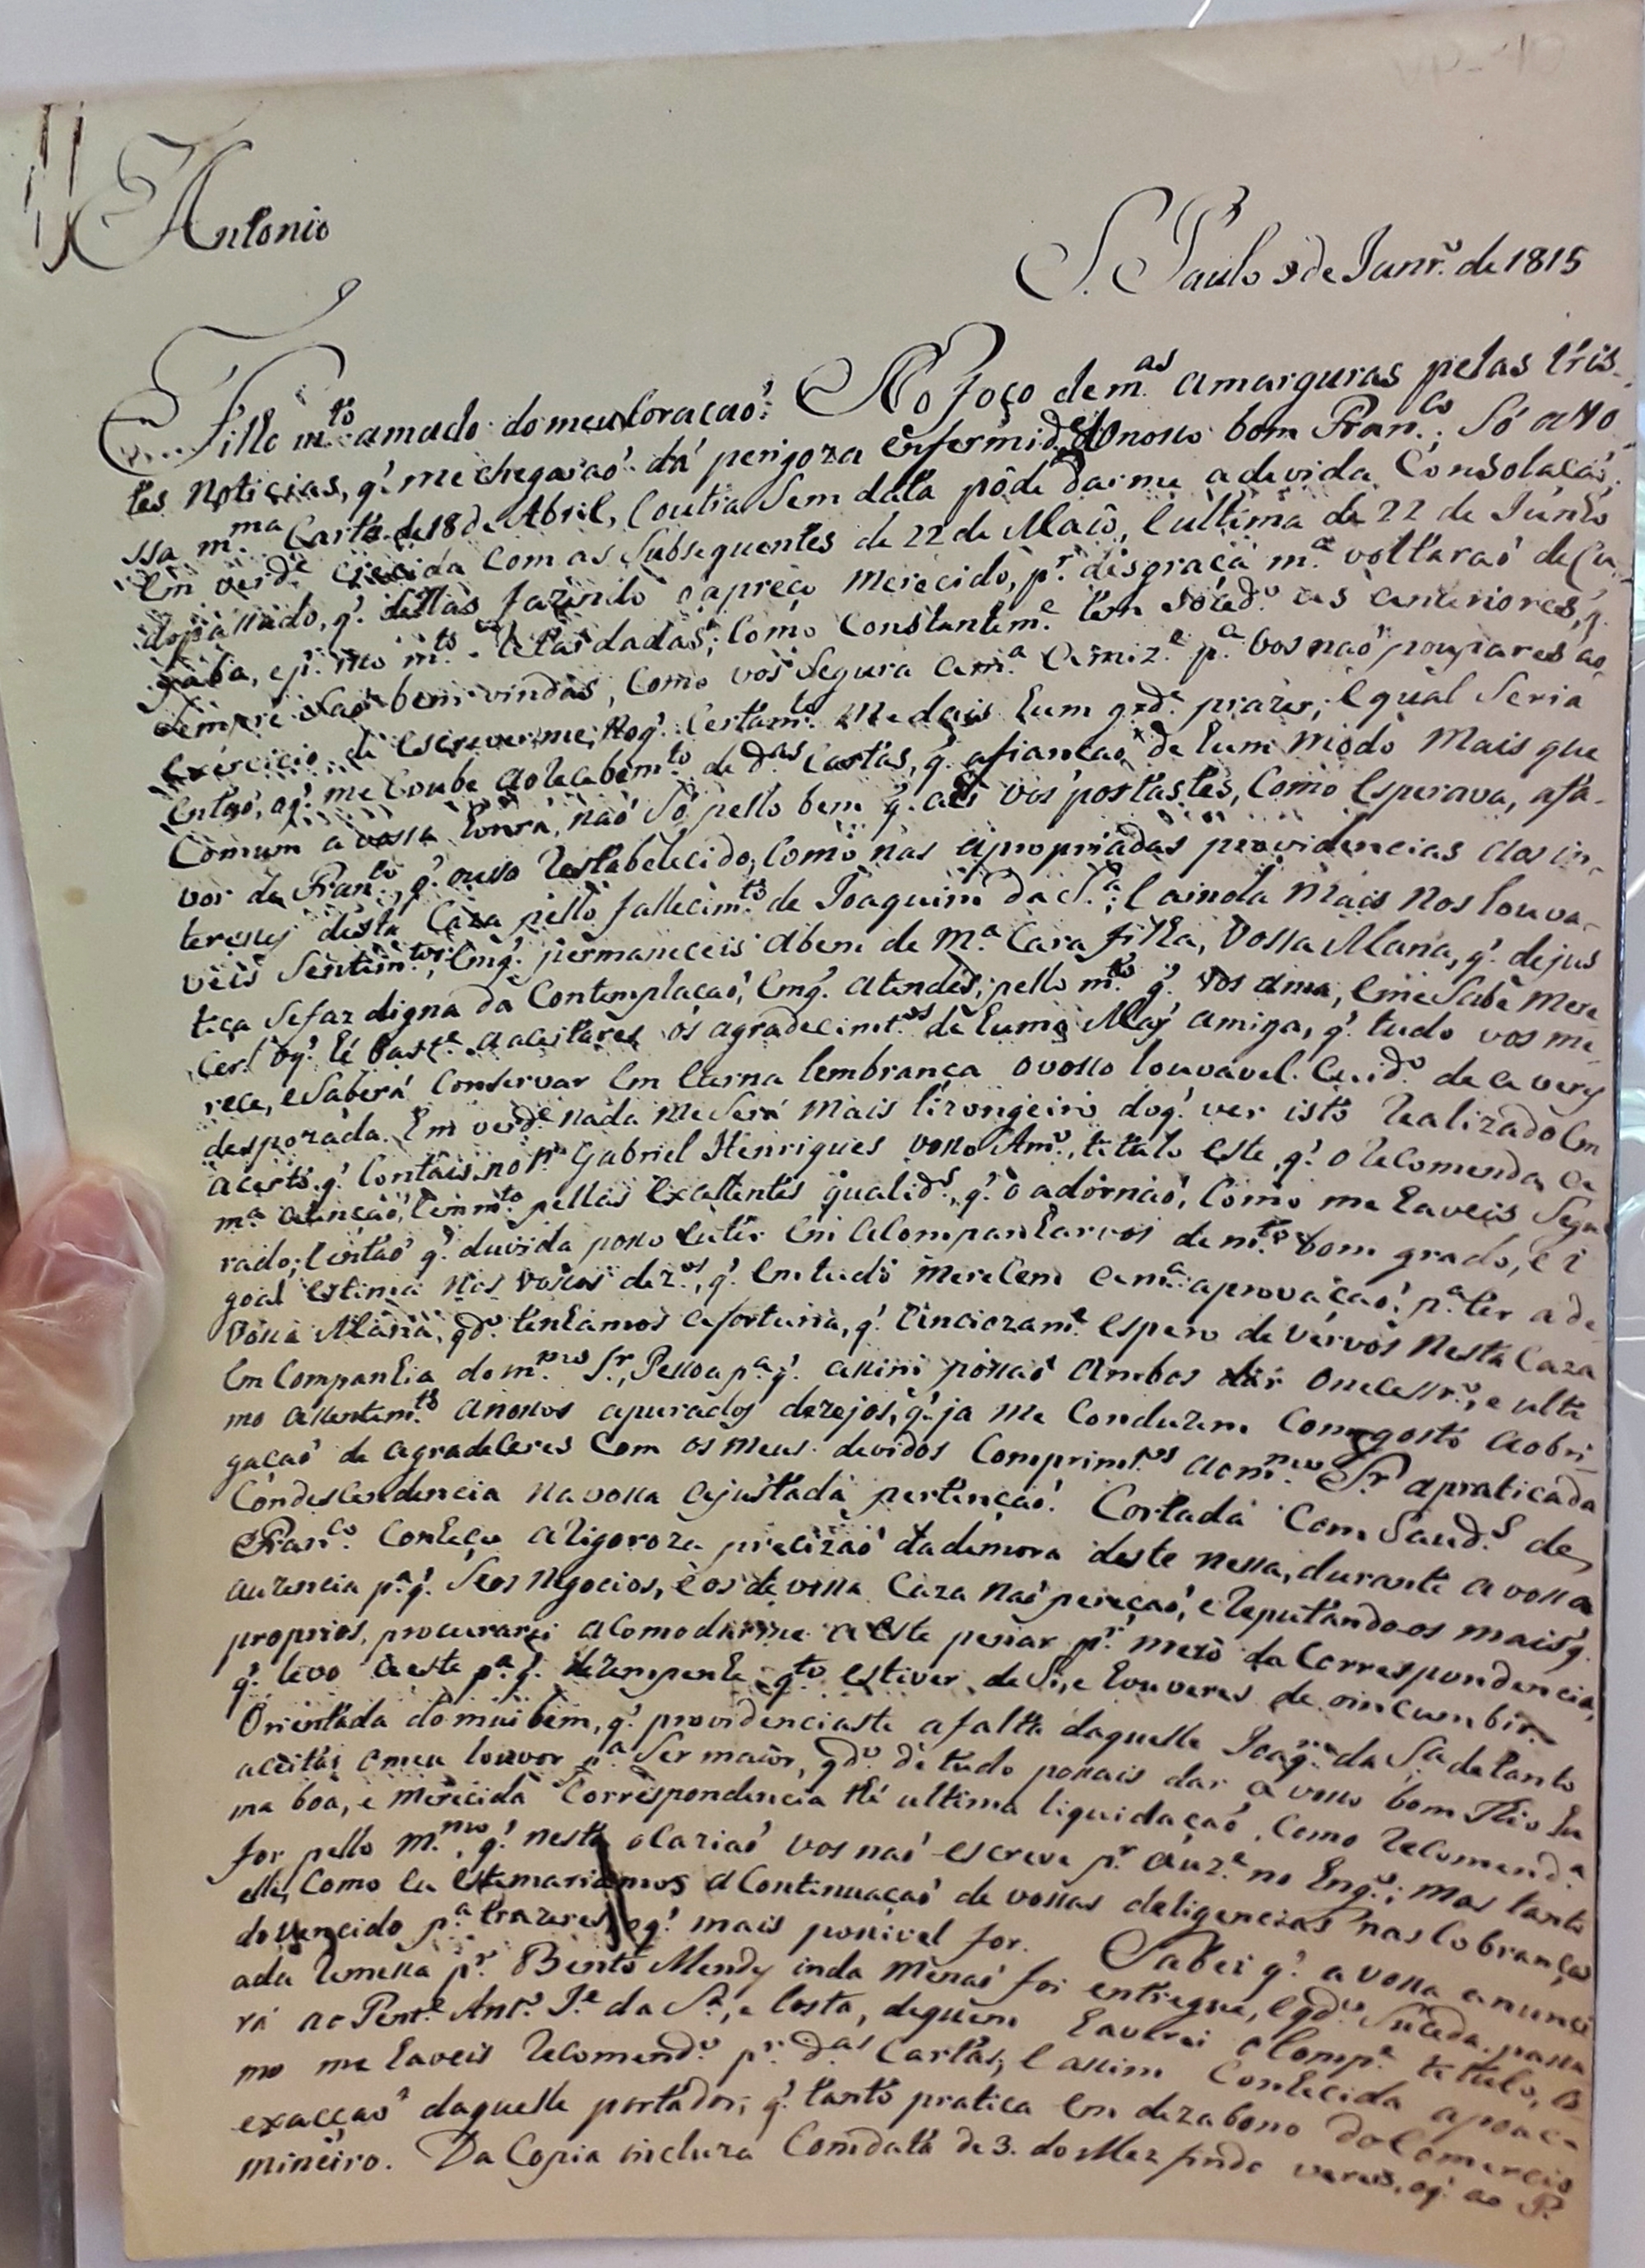 Antonio
S. Paulo 3 de Janr.º de 1815
Filho m.to amado do meu Coraçaõ: No foço de m.as amarguras pelas tris-
tes Noticias, q.' me chegaraõ da perigoza enfermid.e do nosso bom Fran.co; Só a vo
ssa m.ma Carta de 18 de Abril, e outra Sem data pôde darme a devida Consolaçaõ,
Em verd.e crecida com as Subsequentes de 22 de Maio, e ultima de 22 de Junho
do passado, q.' dellas fazendo o apreço merecido, p.r disgraça m.a voltaraõ de Cu
yaba, e p.r isso m.to retardadas; Como Constantem.e tem soced.º as anteriores, q.'
Sempre Saõ bem vindas, Como vos Segura a m.a amiz.e p.a vos naõ poupares ao
exercicio de escreverme, no q.' Certam.te me dais hum grd.e prazer; e qual Seria
entaõ, o q.' me Coube ao recebem.to de d.as Cartas, q.' afiançaõ de hum modo mais que
Comum a vossa honra, naõ Só pello bem q.' ahi vos portastes, Como esperava, a fa-
vor de Fran.co, q.' ouso restabelecido, Como nas apropriadas providencias aos in-
teresses desta Caza pello fallecim.to de Joaquim da S.a; e ainda mais nos louva-
veis Sentim.tos, em q.' permaneceis a bem de m.a Cara filha, Vossa Maria, q.' de jus
tiça Se faz digna da Contemplaçaõ, em q.' a tendes, pello m.to q.' vos ama, e me Sabe mere
cer: o q.' hé bast.e a aceitares os agradecimt.os de huma May amiga, q.' tudo vos me-
rece, e Saberá Conservar em eterna lembrança o vosso louvavel Cuid.º de a very
despozada. Em verd.e nada me Será mais lizongeiro do q.' ver isto realizado em
acerto q.' Contais no P.e Gabriel Henriques vosso Am.º, titulo este, q.' o recomenda a
m.a atençaõ, e em m.to pellas excellentes qualid.s, q.' o adornaõ, Como me haveis Segu
rado; e entaõ q.' duvida posso eu ter em acompanharvos de m.to bom grado, e i
goal estima nos vossos dez.os, q.' em tudo merecem a m.a aprovaçaõ p.a ter a de
Vossa Maria, qd.º tenhamos a fortuna, q.' Cinciozam.e espero de vervos nesta Caza
em Companhia do m.mo S.r, Pessoa p.a q.' assim possaõ ambos dár o necessr.º, e ulti
mo assentam.to a nossos apurados dezejos, q.' ja me Conduzem Com gosto a obri
gaçaõ de agradeceres Com os meus devidos Comprimt.os ao m.mo S.r a praticada
Condescendencia na vossa ajustada pertençaõ. Cortada Com Saud.s de
Fran.co Conheço a rigoroza precizaõ da demora deste nessa, durante a vossa
auzencia p.a q.' Seos Negocios, e os de vossa Caza naõ pereçaõ, e reputando-os mais q.'
proprios, procurarei acomodarme a este penar p.r meio da Correspondencia,
q.' levo a este p.a q.' dezempenhe q.to estiver de Si, e houveres de o incumbir.
Orientada do mui bem, q.' providenciaste a falta daquelle Joaq.m da S.a de tanto
aceitai o meu louvor p.a Ser maior, qd.º de tudo possais dar a vosso bom Thio hu
ma boa, e merecida Correspondencia té ultima liquidaçaõ, Como recomend.a
for pello m.mo, q.' nesta ocaziaõ vos naõ escreve p.r auz.e no Eng.º; mas tanto
elle, Como eu estimariamos a Continuaçaõ de vossas deligencias nas Cobranças
do Vencido p.a trazeres o q.' mais possivel for. Sabei q.' a vossa anunci
ada remessa p.r Bento Mendy inda me naõ foi entregue, e qd.º Suceda, passa
rá ao Tent.e Ant.º J.e da S.a, e Costa, de quem haverei o Comp.e titulo, Co
mo me haveis recomend.º p.r d.as Cartas, e assim Conhecida a pouca
exacçaõ daquelle portador, q.' tanto pratica em dezabono do Comercio
mineiro. Da Copia incluza Com data de 3. do Mez findo vereis, o q.' ao P.